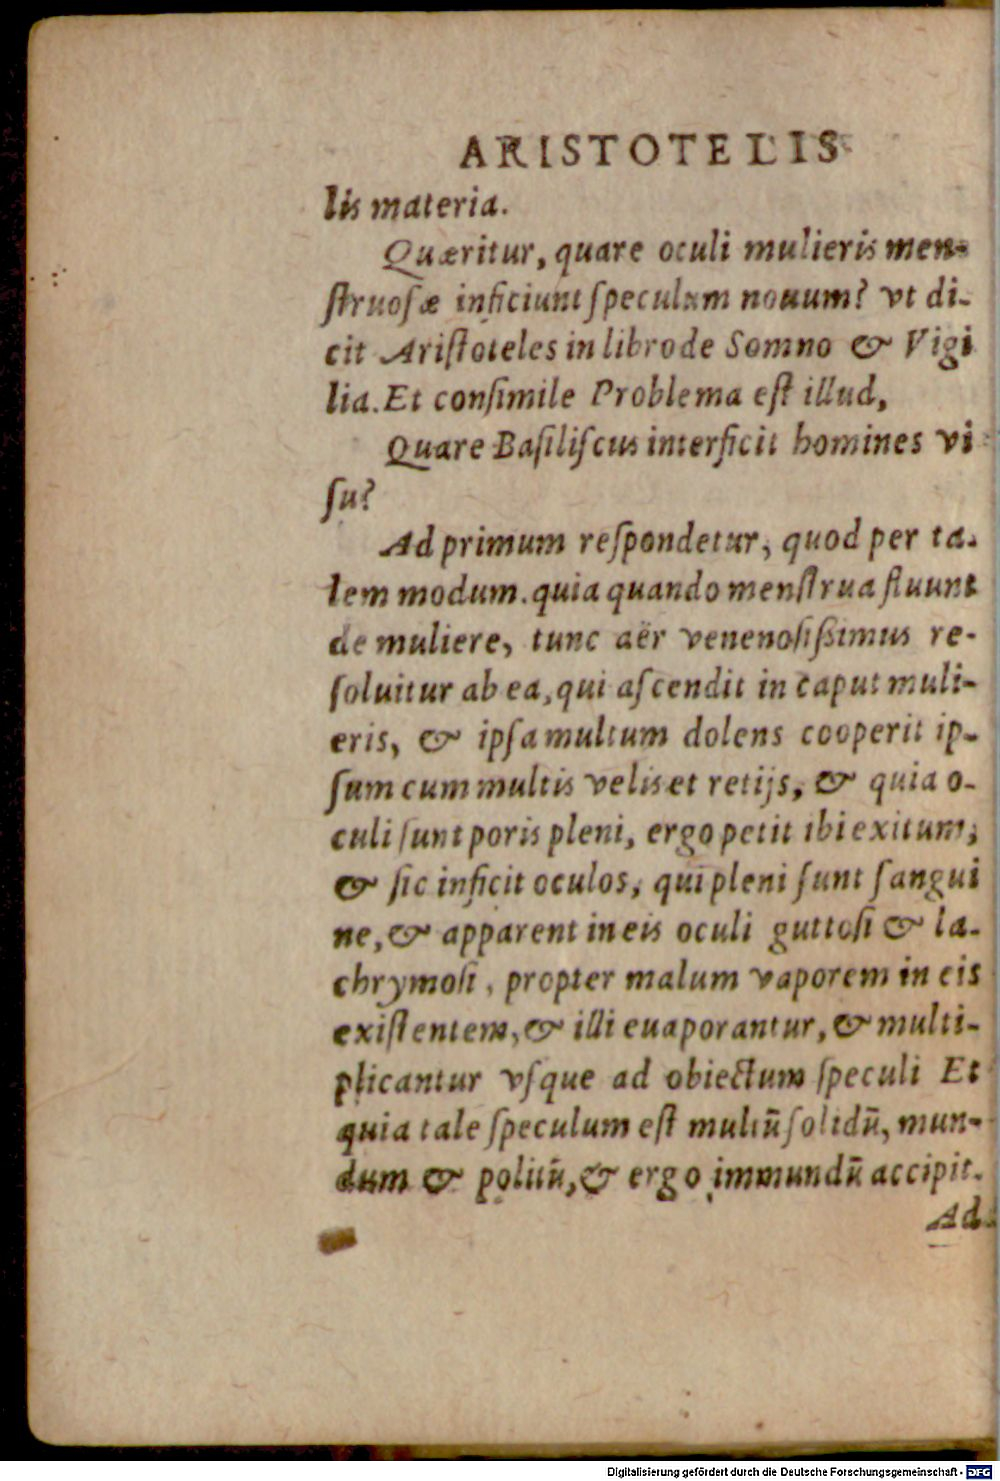 ARISTOTELIS
lis materia.
Quæritur, quare oculi mulieris men-
ſtruoſæ inficiunt ſpeculum nouum? vt di-
cit Ariſtoteles in libro de Somno & Vigi
lia. Et conſimile Problema eſt illud,
Quare Baſiliſcus interficit homines vi
ſu?
Ad primum reſpondetur, quod per ta-
lem modum. quia quando menſtrua fluunt
de muliere, tunc aër venenoſißimus re-
ſoluitur ab ea, qui aſcendit in caput muli-
eris, & ipſa multum dolens cooperit ip-
ſum cum multis velis et retijs, & quia o-
culi ſunt poris pleni, ergo petit ibi exitum,
& ſic inficit oculos, qui pleni ſunt ſangui
ne, & apparent in eis oculi guttoſi & la-
chrymoſi, propter malum vaporem in eis
exiſtentem, & illi euaporantur, & multi-
plicantur vſque ad obiectum ſpeculi Et
quia tale ſpeculum eſt multū ſolidū, mun-
dum & politū, & ergo immundū accipit.
Ad
Digitalisierung gefördert durch die Deutsche Forschungsgemeinschaft - DFG